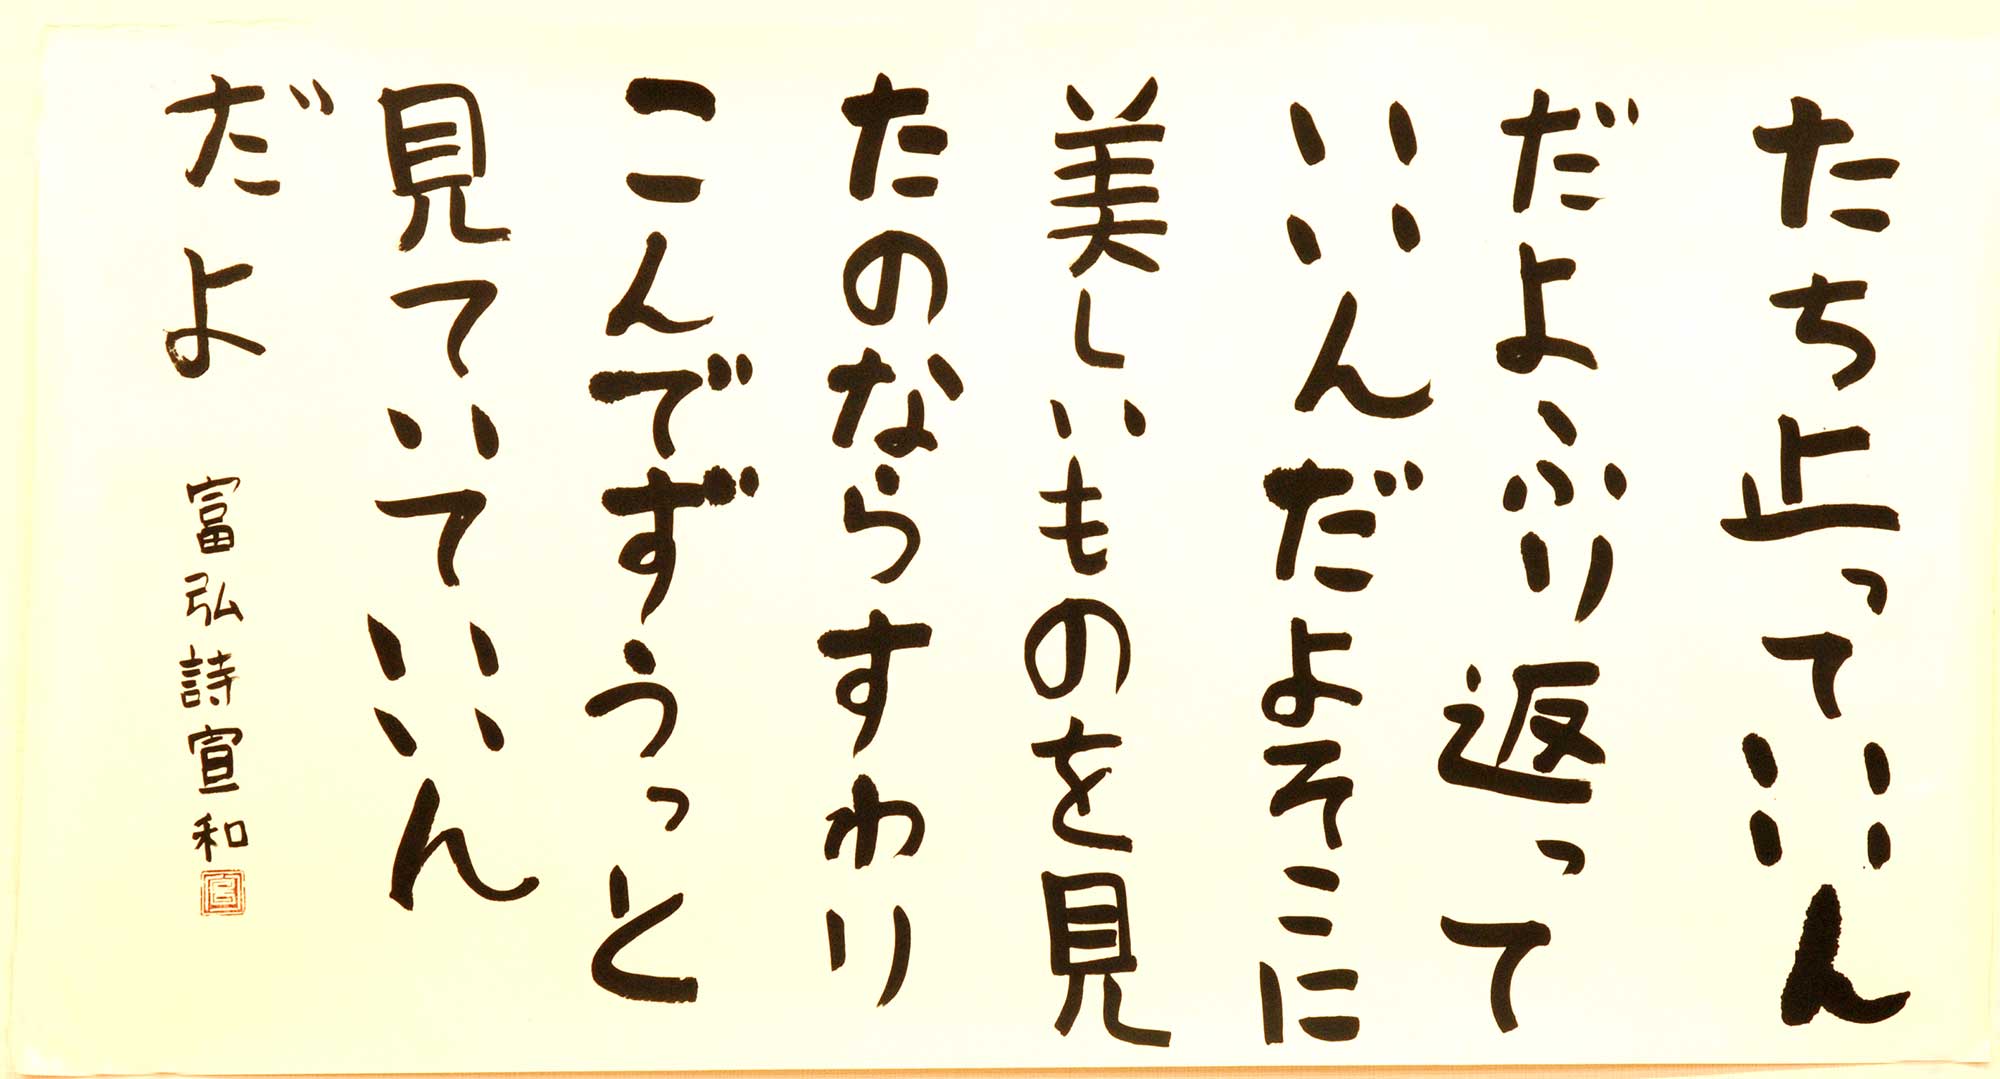 たち止っていいん
だよふり返って
いいんだよそこに
美しいものを見
たのならすわり
こんでずうっと
見ていていいん
だよ 富弘詩宣和